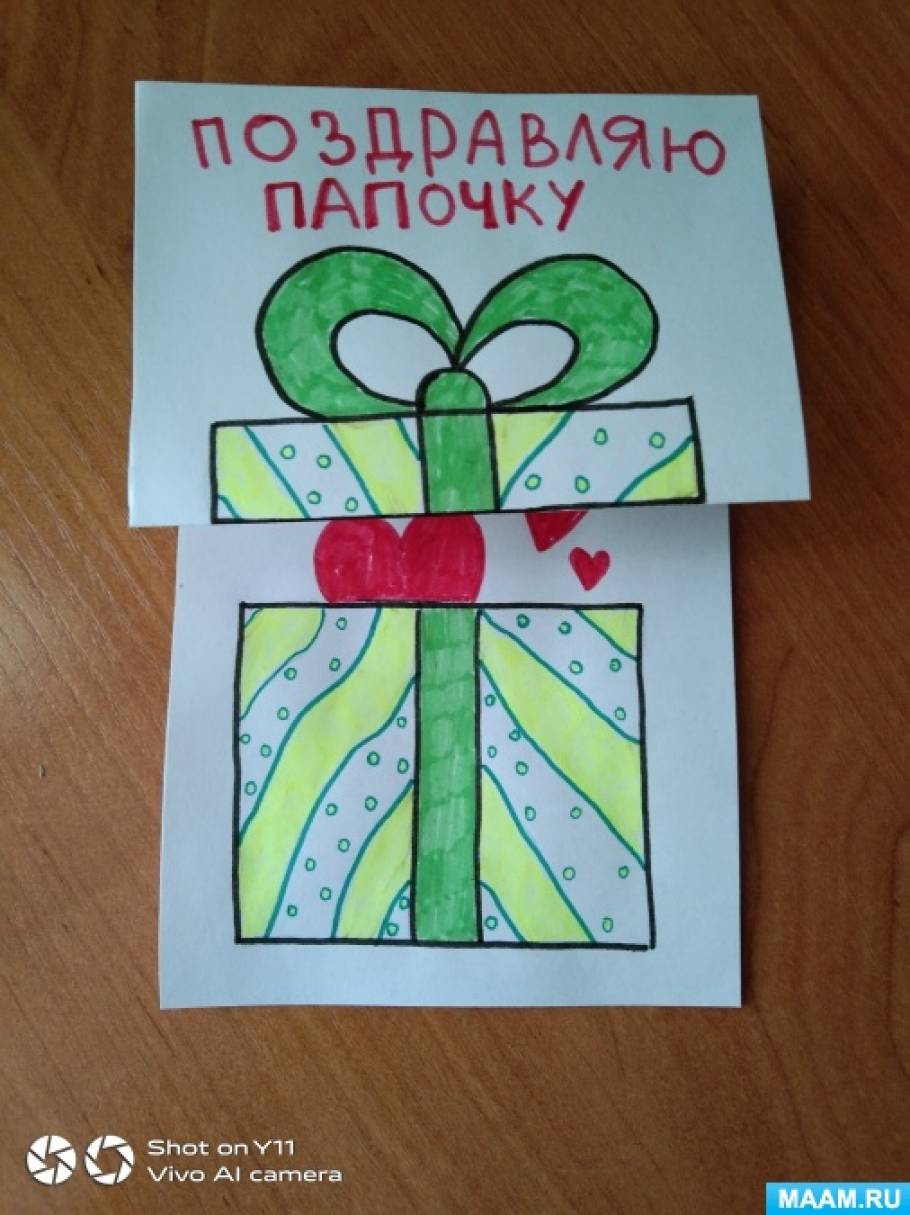 ПОЗДРАВЛЯЮ
ПАПОЧКУ
Shot on Y11
Vivo AI camera
MAAM.RU